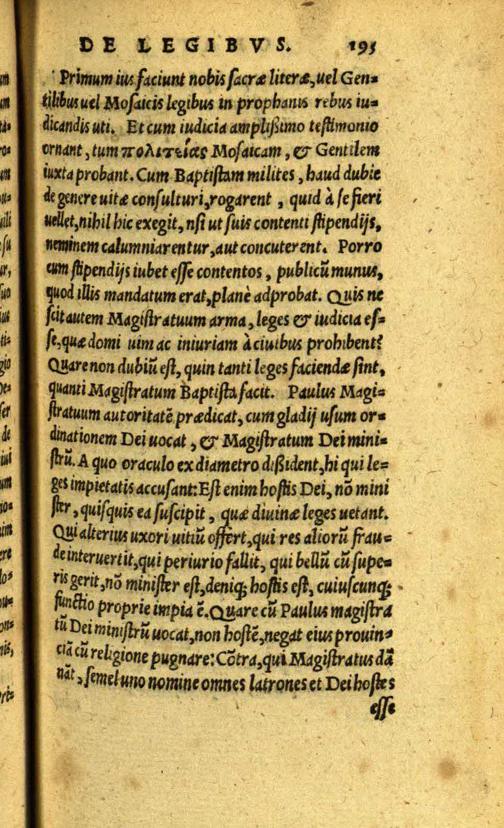 DE LEGIBVS. 195
Primum ius faciunt nobis sacræ literæ, uel Gen=
tilibus uel Mosaicis legibus in prophanis rebus iu=
dicandis uti. Et cum iudicia amplißimo testimonio
ornant, tum πολιτείας Mosaicam, & Gentilem
iuxta probant. Cum Baptistam milites, haud dubie
de genere uitæ consulturi, rogarent, quid à se fieri
uellet, nihil hic exegit, nsi ut suis contenti stipendijs,
neminem calumniarentur, aut concuterent. Porro
cum stipendijs iubet esse contentos, publicū munus,
quod illis mandatum erat, planè adprobat. Quis ne
scit autem Magistratuum arma, leges & iudicia es=
se, quæ domi uim ac iniuriam à ciuibus prohibent?
Quare non dubiū est, quin tanti leges faciendæ sint,
quanti Magistratum Baptista facit. Paulus Magi=
stratuum autoritatē prædicat, cum gladij usum or=
dinationem Dei uocat, & Magistratum Dei mini=
strū. A quo oraculo ex diametro dißident, hi qui le=
ges impietatis accusant: Est enim hostis Dei, nō mini
ster, quisquis ea suscipit, quæ diuinæ leges uetant.
Qui alterius uxori uitiū offert, qui res aliorū frau=
de interuertit, qui periurio fallit, qui bellū cū supe=
ris gerit, nō minister est, deniq; hostis est, cuiuscunq;
functio proprie impia ē. Quare cū Paulus magistra
tū Dei ministrū uocat, non hostē, negat eius prouin=
ciā cū religione pugnare: Cōtra, qui Magistratus dā
nāt, semel uno nomine omnes latrones et Dei hostes
esse